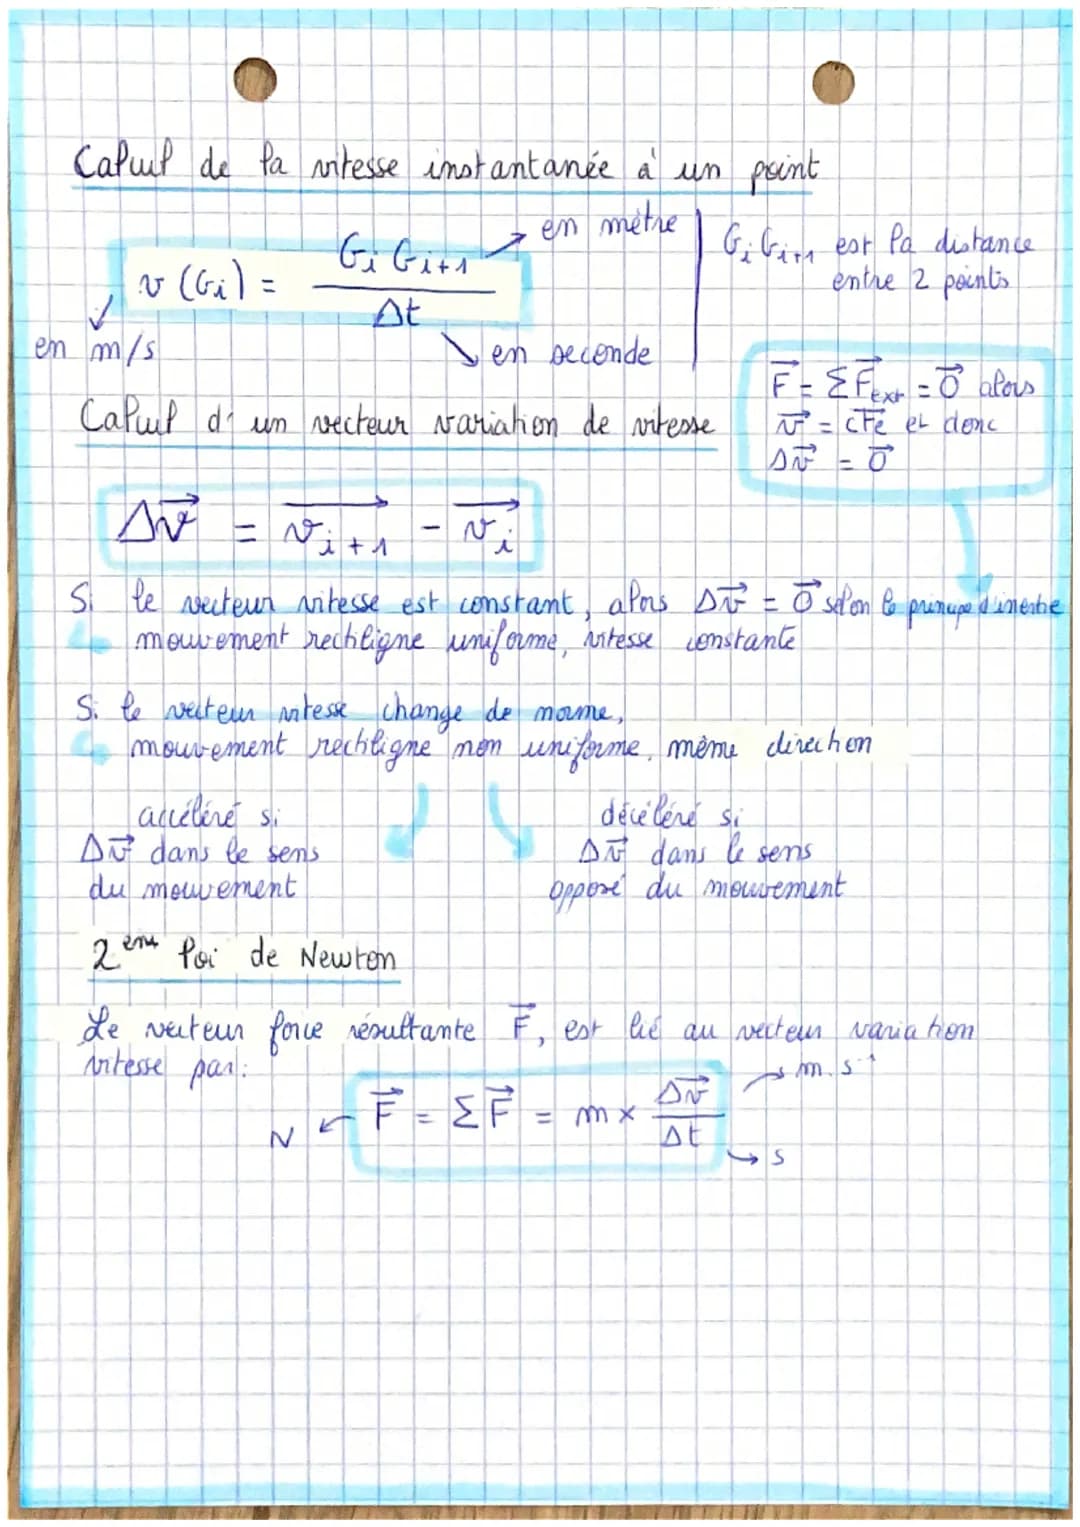 Calcul de la vitesse instantanée à un point
v (Gi) = Gi Gi+1 / Δt
→ en mètre
en m/s
→ en seconde
Gi Gi+1 est la distance
entre 2 points
F⃗ = Σ F⃗ext = 0⃗ alors
v⃗ = cte et donc
Δv⃗ = 0⃗
Calcul d'un vecteur variation de vitesse
Δv⃗ = v⃗i+1 - v⃗i
Si le vecteur vitesse est constant, alors Δv⃗ = 0⃗ selon le principe d'inertie
mouvement rectiligne uniforme, vitesse constante
Si le vecteur vitesse change de norme,
mouvement rectiligne non uniforme, même direction
accéléré si
Δv⃗ dans le sens
du mouvement
décéléré si
Δv⃗ dans le sens
opposé du mouvement
2ème loi de Newton
Le vecteur force résultante F⃗, est lié au vecteur variation
vitesse par:
N ← F⃗ = Σ F⃗ = m × Δv⃗ / Δt
→ m.s⁻¹
→ s